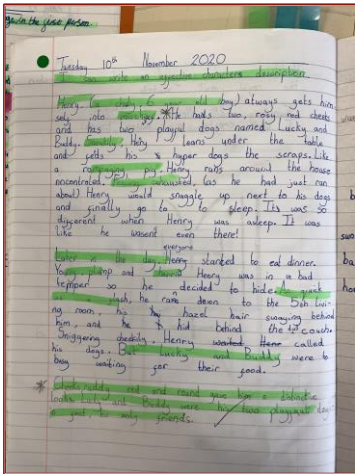 in the first person...
Tuesday 10th November 2020
I can write an effective character description
Henry (a chubby, 6 year old boy) always gets him
self into mischief. He has two, rosy red cheeks
and has two playful dogs named Lucky and
Buddy. Sneakily, Henry leans under the table
and feeds his hyper dogs the scraps. Like
a rampaging pig, Henry runs around the house
exhausted, (as he had just run
about) Henry would snuggle up next to his dogs
and finally go to sleep. It was so
different when Henry was asleep. It was
like he wasent even there!
everyone
Later in the day, started to eat dinner.
Young, plump and Henry was in a bad
temper so he decided to hide. As quick
as a flash, he ran down to the
ng room, his hazel hair swaying behind
him, and he hid behind the couch.
Sniggering cheekily, Henry called
his dogs. But Lucky and Buddy were to
busy waiting for their food.
red and round gave him a
looks. Lucky and Buddy were his two
in fact, his only friends.